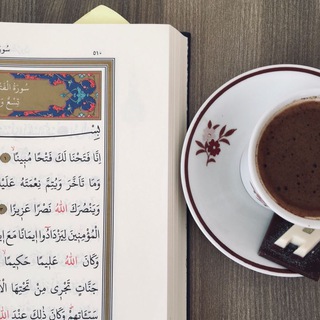 ٥١٠ سُورَ
سُورَةُ الْفَتْ
تِسْعٌ وَ
بِسْ
اِنَّا فَتَحْنَا لَكَ فَتْحًا مُبٖينًاۙ ١
وَمَا تَاَخَّرَ وَيُتِمَّ نِعْمَتَهُ عَلَيْ
وَيَنْصُرَكَ اللّٰهُ نَصْرًا عَزٖيزًا ٣
الْمُؤْمِنٖينَ لِيَزْدَادُٓوا اٖيمَانًا مَعَ
وَكَانَ اللّٰهُ عَلٖيمًا حَكٖيمًاۙ
جَنَّاتٍ تَجْرٖي مِنْ تَحْتِهَا الْاَ
سَيِّـَٔاتِهِمْؕ وَكَانَ ذٰلِكَ عِنْدَ اللّٰ